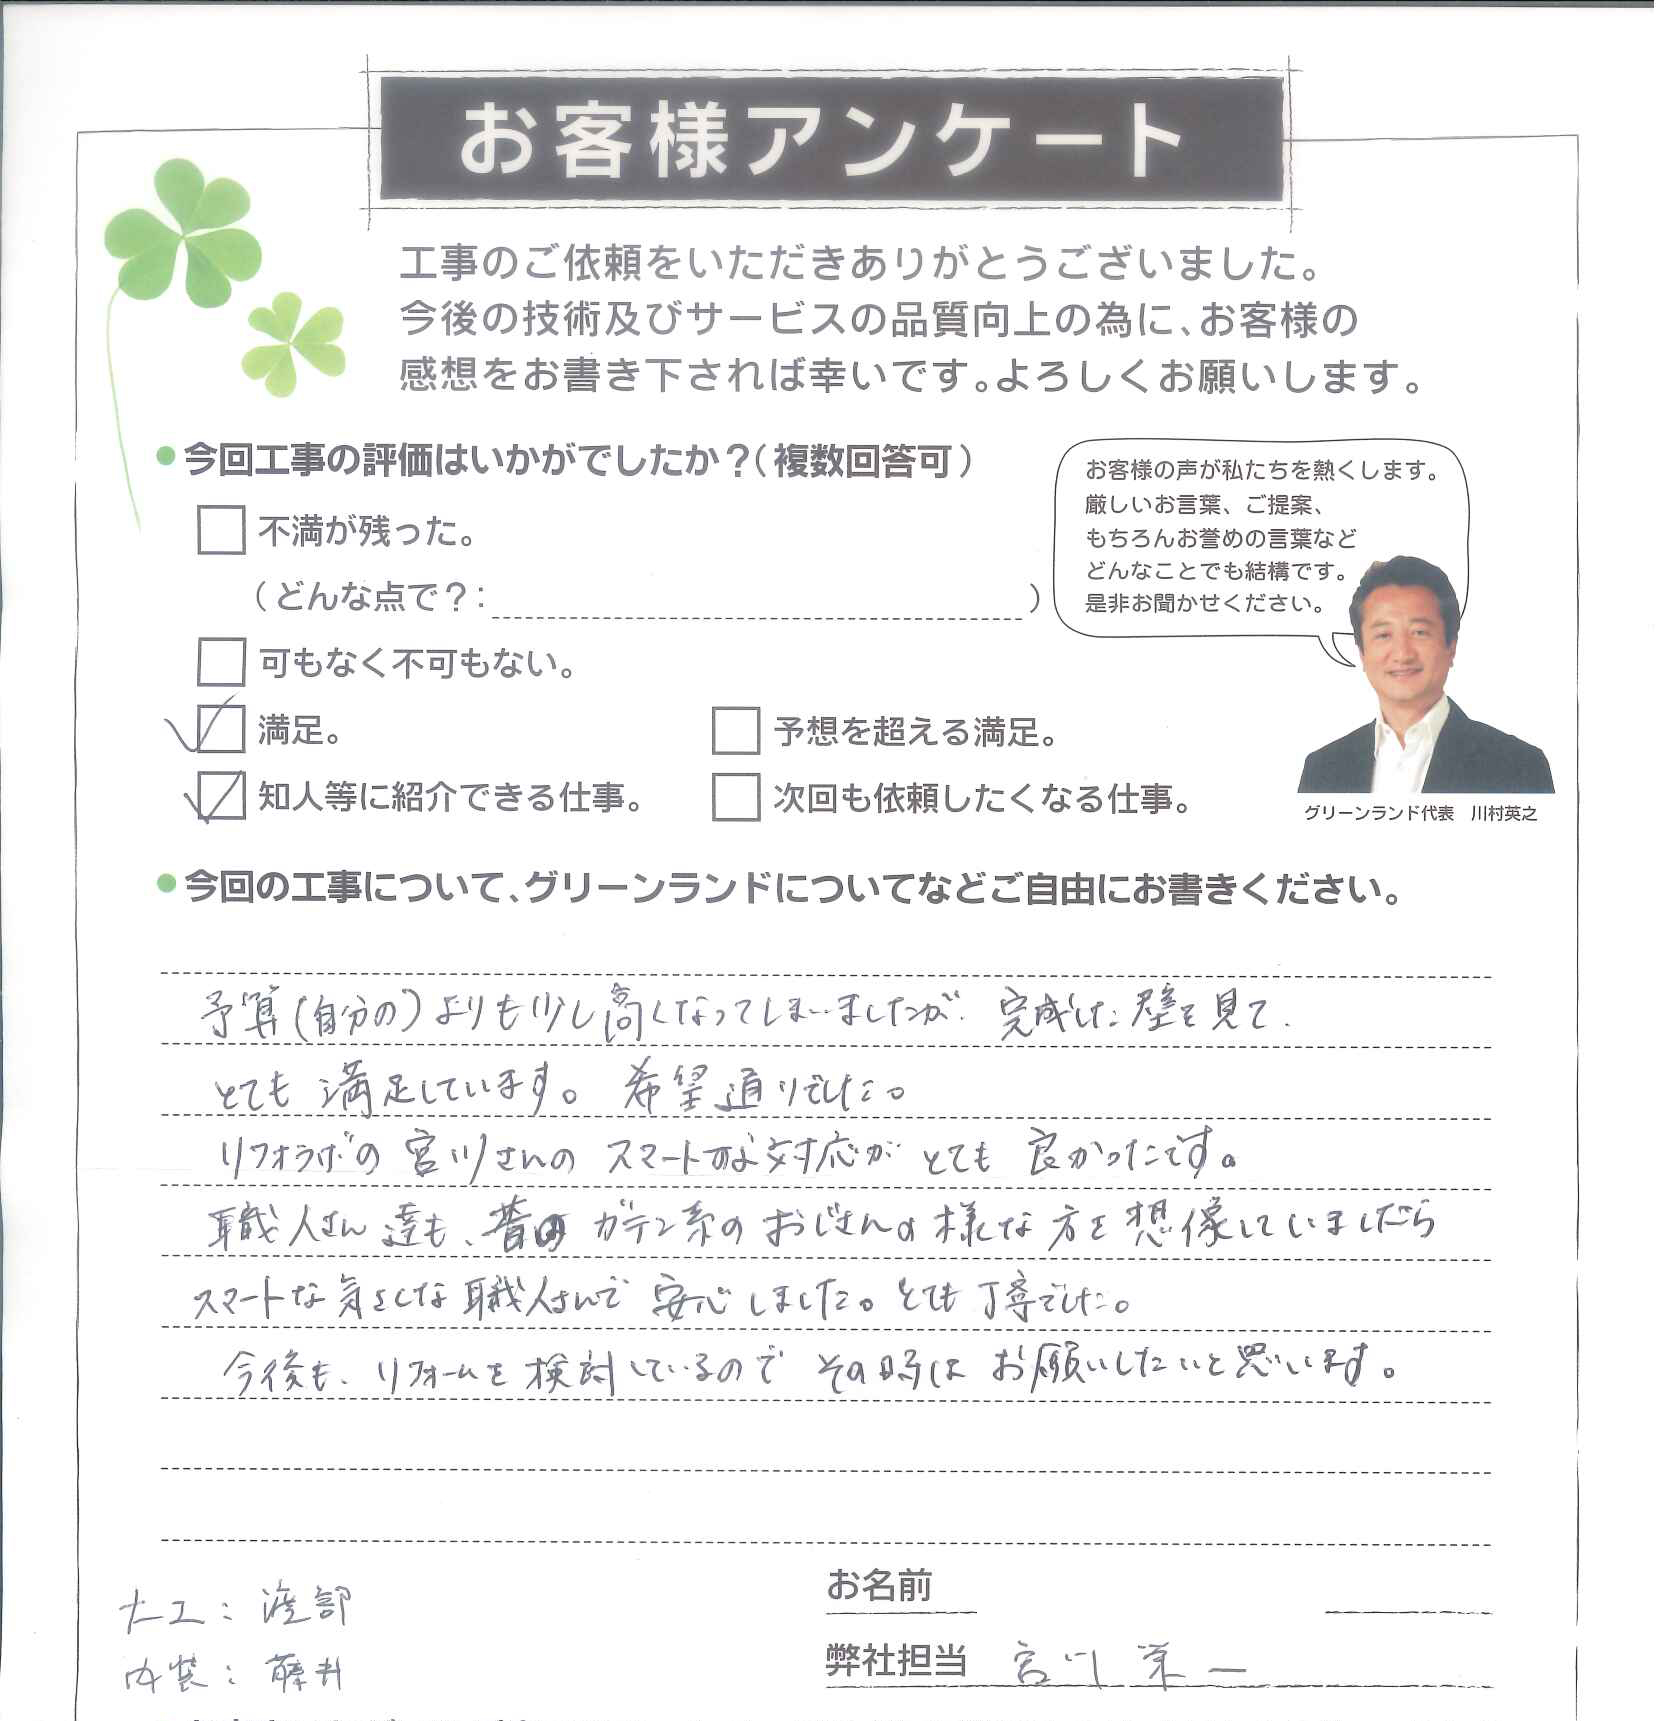 お客様アンケート
工事のご依頼をいただきありがとうございました。
今後の技術及びサービスの品質向上の為に、お客様の
感想をお書き下されば幸いです。よろしくお願いします。
●今回工事の評価はいかがでしたか？（複数回答可）
不満が残った。
（どんな点で？：　）
可もなく不可もない。
満足。
予想を超える満足。
知人等に紹介できる仕事。
次回も依頼したくなる仕事。
お客様の声が私たちを熱くします。
厳しいお言葉、ご提案、
もちろんお誉めの言葉など
どんなことでも結構です。
是非お聞かせください。
グリーンランド代表　川村英之
●今回の工事について、グリーンランドについてなどご自由にお書きください。
予算(自分の)よりも少し高くなってしまいましたが、完成した壁を見て、
とても満足しています。希望通りでした。
リフォラボの宮川さんのスマートな対応がとても良かったです。
職人さん達も、昔の ガテン系のおじさんの様な方を想像していましたら
スマートな気さくな職人さんで安心しました。とても丁寧でした。
今後も、リフォームを検討しているのでその時はお願いしたいと思います。
大工：渡部
内装：藤井
お名前
弊社担当　宮川 栄一